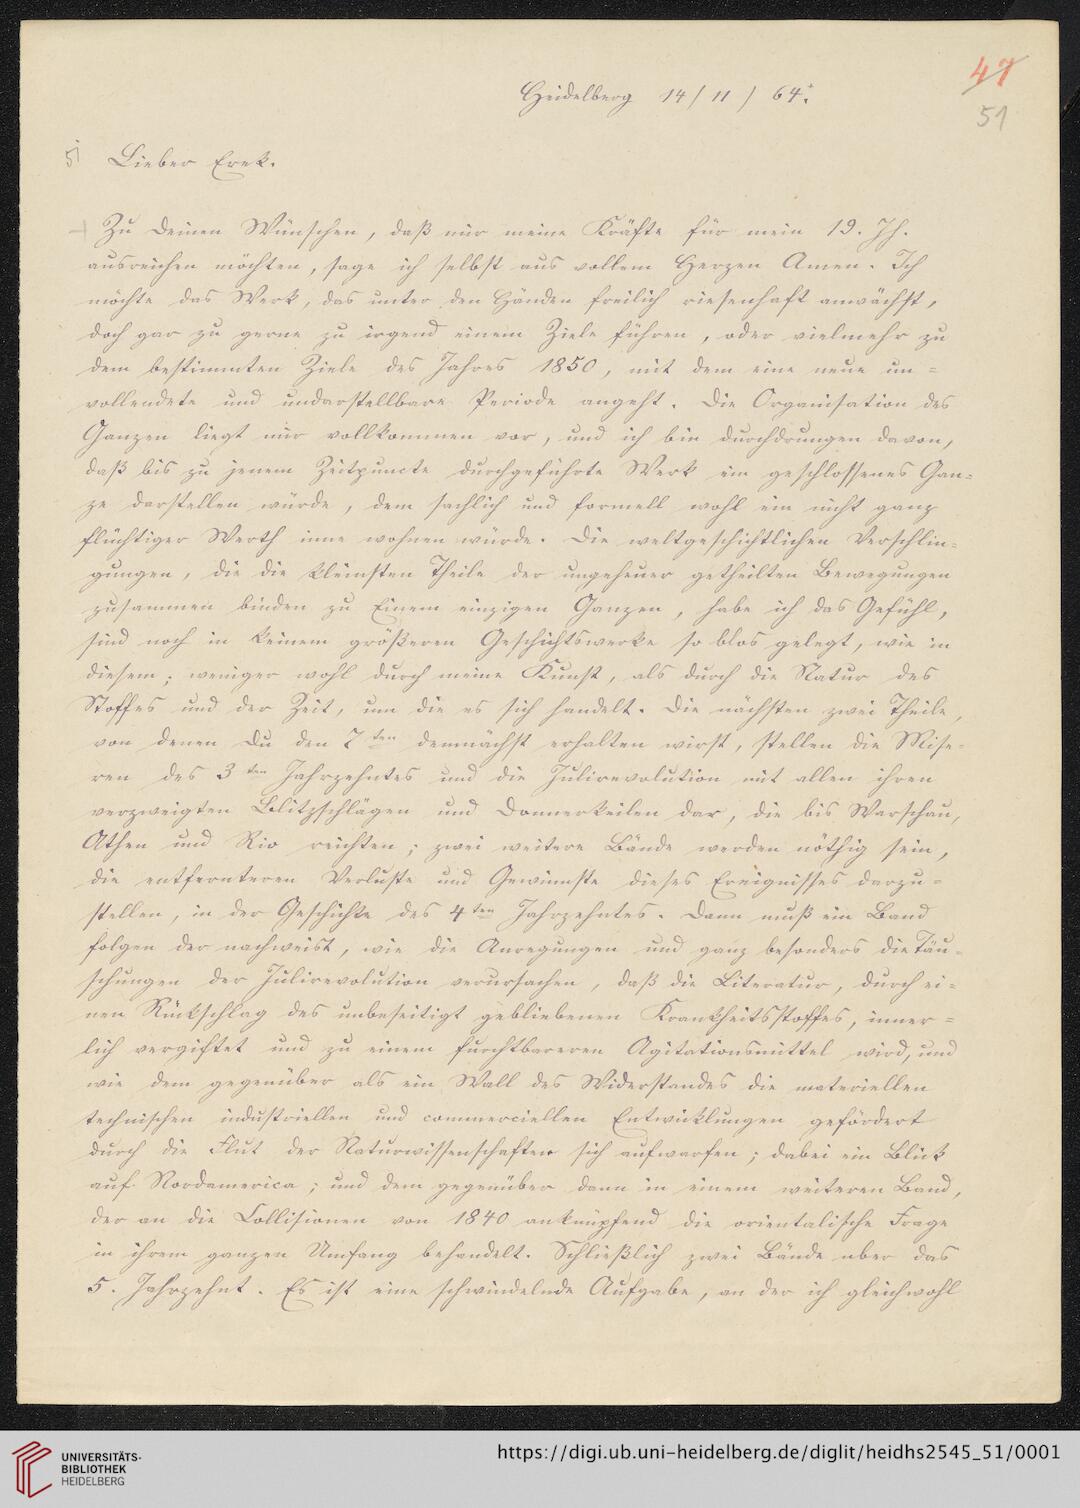 47
51
Heidelberg 14/11/64.
51 Lieber Erek.
Zu Deinen Wünschen, daß mir meine Kräfte für mein 19. Jh.
ausreichen möchten, sage ich selbst aus vollem Herzen Amen. Ich
möchte das Werk, das unter den Händen freilich riesenhaft anwächst,
doch gar zu gerne zu irgend einem Ziele führen, oder vielmehr zu
dem bestimmten Ziele des Jahres 1850, mit dem eine neue un=
vollendete und undarstellbare Periode angeht. Die Organisation des
Ganzen liegt mir vollkommen vor, und ich bin durchdrungen davon,
daß bis zu jenem Zeitpuncte durchgeführte Werk ein geschlossenes Gan=
ze darstellen würde, dem sachlich und formell wohl ein nicht ganz
flüchtiger Werth inne wohnen würde. Die weltgeschichtlichen Verschlin=
gungen, die die kleinsten Theile der ungeheuer getheilten Bewegungen
zusammen binden zu Einem einzigen Ganzen, habe ich das Gefühl,
sind noch in keinem größeren Geschichtswerke so blos gelegt, wie in
diesem; weniger wohl durch meine Kunst, als durch die Natur des
Stoffes und der Zeit, um die es sich handelt. Die nächsten zwei Theile,
von denen Du den 7ten demnächst erhalten wirst, stellen die Mise=
ren des 3ten Jahrzehntes und die Julirevolution mit allen ihren
verzweigten Blitzschlägen und Donnerkeilen dar, die bis Warschau,
Athen und Rio reichten; zwei weitere Bände werden nöthig sein,
die entfernteren Verluste und Gewinnste dieses Ereignisses darzu=
stellen, in der Geschichte des 4ten Jahrzehntes. Dann muß ein Band
folgen der nachweist, wie die Anregungen und ganz besonders die Täu=
schungen der Julirevolution verursachen, daß die Literatur, durch ei=
nen Rückschlag des unbeseitigt gebliebenen Krankheitsstoffes, inner=
lich vergiftet und zu einem furchtbareren Agitationsmittel wird, und
wie dem gegenüber als ein Wall des Widerstandes die materiellen
technischen industriellen und commerciellen Entwicklungen gefördert
durch die Flut der Naturwissenschaften sich aufwarfen; dabei ein Blick
auf Nordamerica; und dem gegenüber dann in einem weiteren Band,
der an die Collisionen von 1840 anknüpfend die orientalische Frage
in ihrem ganzen Umfang behandelt. Schließlich zwei Bände uber das
5. Jahrzehnt. Es ist eine schwindelnde Aufgabe, an der ich gleichwohl
UNIVERSITÄTS-
BIBLIOTHEK
HEIDELBERG
https://digi.ub.uni-heidelberg.de/diglit/heidhs2545_51/0001